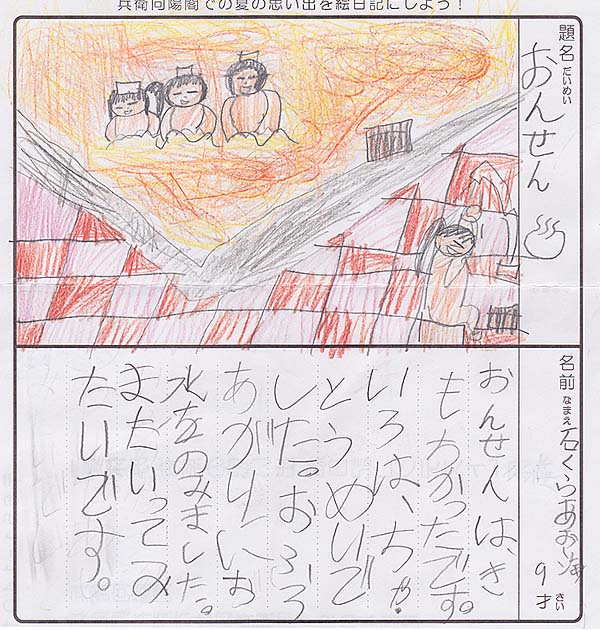 兵衛向陽閣での夏の思い出を絵日記にしよう！
題名 だいめい
おんせん
名前 なまえ
石くらあお海
9才 さい
おんせんは、き
もちかったです。
いろは、ちゃ
とうめいで
した。おふろ
あがりにお
水をのみました。
またいってみ
たいです。